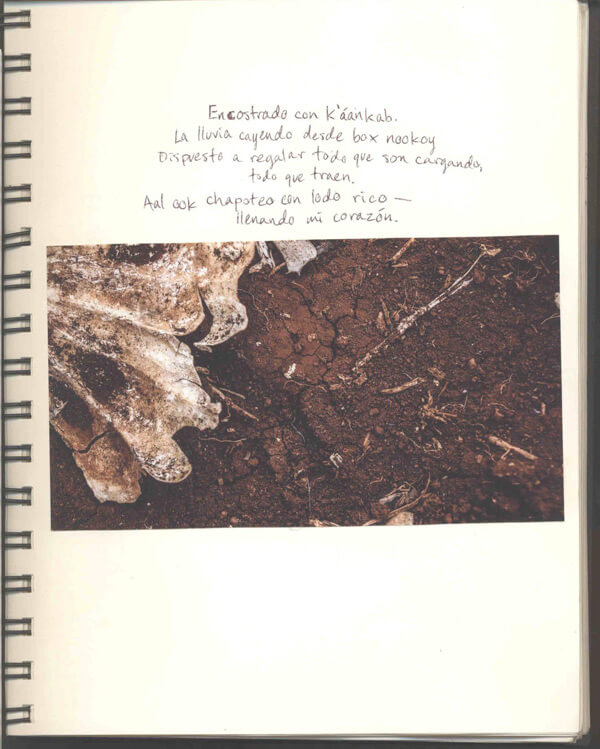 Encostrado con K'áankab.
La lluvia cayendo desde box nookoy
Dispuesto a regalar todo que son cargando,
todo que traen.
Aal ook chapoteo con lodo rico —
llenando mi corazón.